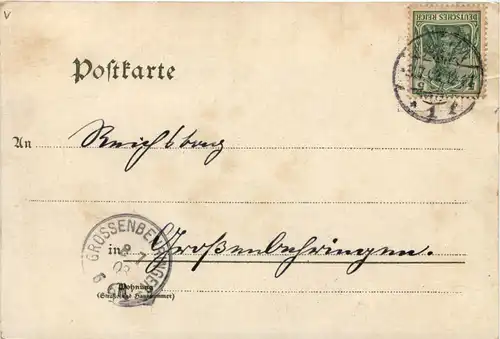 V
DEUTSCHES REICH
Postkarte
1 f
An Reichsbong
GROSSENBEHRINGEN
in Großenbehringen.
Wohnung
(Straße und Hausnummer)